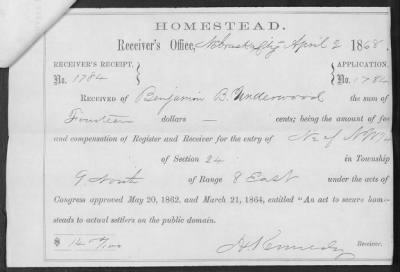 HOMESTEAD.
Receiver's Office, Nebraska City April 2 1868.
RECEIVER'S RECEIPT. APPLICATION.
No. 1784 No. 1784
RECEIVED OF Benjamin B. Underwood the sum of
Fourteen dollars — cents; being the amount of fee
and compensation of Register and Receiver for the entry of N ½ of NW ¼
of Section 24 in Township
9 North of Range 8 East under the acts of
Congress approved May 20, 1862, and March 21, 1864, entitled "An act to secure home-
steads to actual settlers on the public domain.
$ 14 00/100 H Kennedy Receiver.